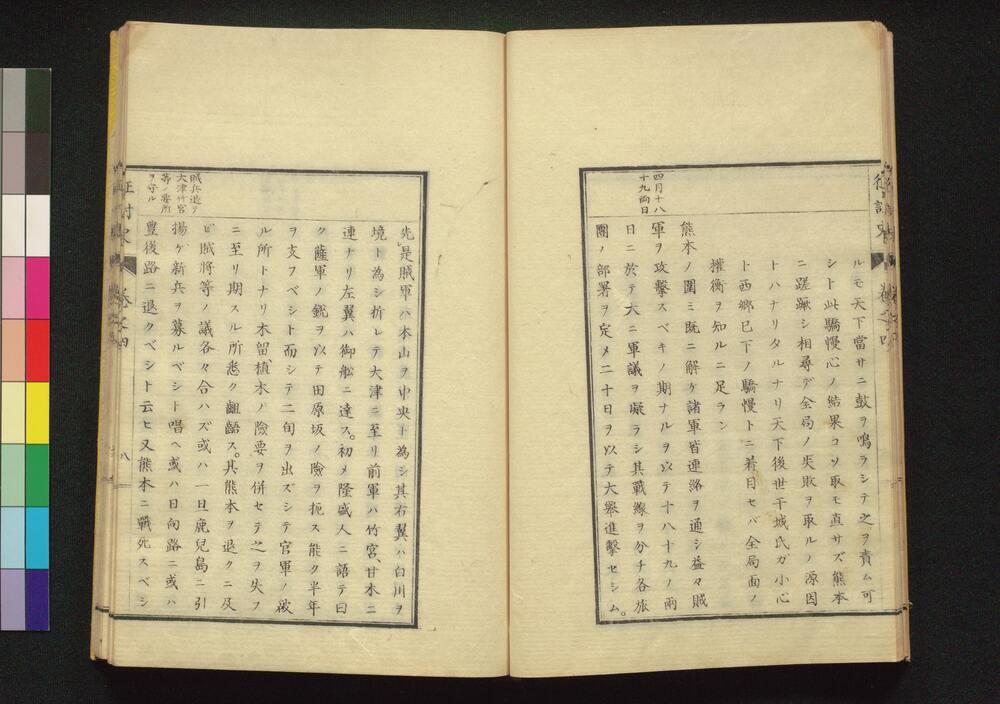 ルモ天下當サニ鼓ヲ鳴ラシテ之ヲ責ム可
シト此驕慢心ノ結果コソ取モ直サズ熊本
ニ蹉蹶シ相尋デ全局ノ失敗ヲ取ルノ源因
トハナリタルナリ天下後世干城氏ガ小心
ト西郷已下ノ驕慢トニ着目セバ全局面ノ
權衡ヲ知ルニ足ラン
熊本ノ圍ミ既ニ解ケ諸軍皆連絡ヲ通シ益々賊
四月十八
十九両日
軍ヲ攻擊スベキノ期ナルヲ以テ十八十九ノ兩
日ニ於テ大ニ軍議ヲ凝ラシ其戰線ヲ分チ各旅
團ノ部署ヲ定メ二十日ヲ以テ大擧進擊セシム。
先是賊軍ハ本山ヲ中央ト為シ其右翼ハ白川ヲ
境ト為シ折レテ大津ニ至リ前軍ハ竹宮、甘木ニ
連ナリ左翼ハ御舩ニ達ス。初メ隆盛人ニ語テ曰
ク薩軍ノ銳ヲ以テ田原坂ノ險ヲ扼ス能ク半年
ヲ支フベシト而シテ二旬ヲ出ズシテ官軍ノ破
ル所トナリ木留、植木ノ險要ヲ併セテ之ヲ失フ
ニ至リ期スル所悉ク齟齬ス。其熊本ヲ退クニ及
ビ賊將等ノ議各々合ハズ或ハ一旦鹿兒島ニ引
賊兵退テ
大津竹宮
等ノ要所
ヲ守ル
揚ゲ新兵ヲ募ルベシト唱ヘ或ハ日向路ニ或ハ
豊後路ニ退クベシト云ヒ又熊本ニ戰死スベシ
征討史
卷之四
八